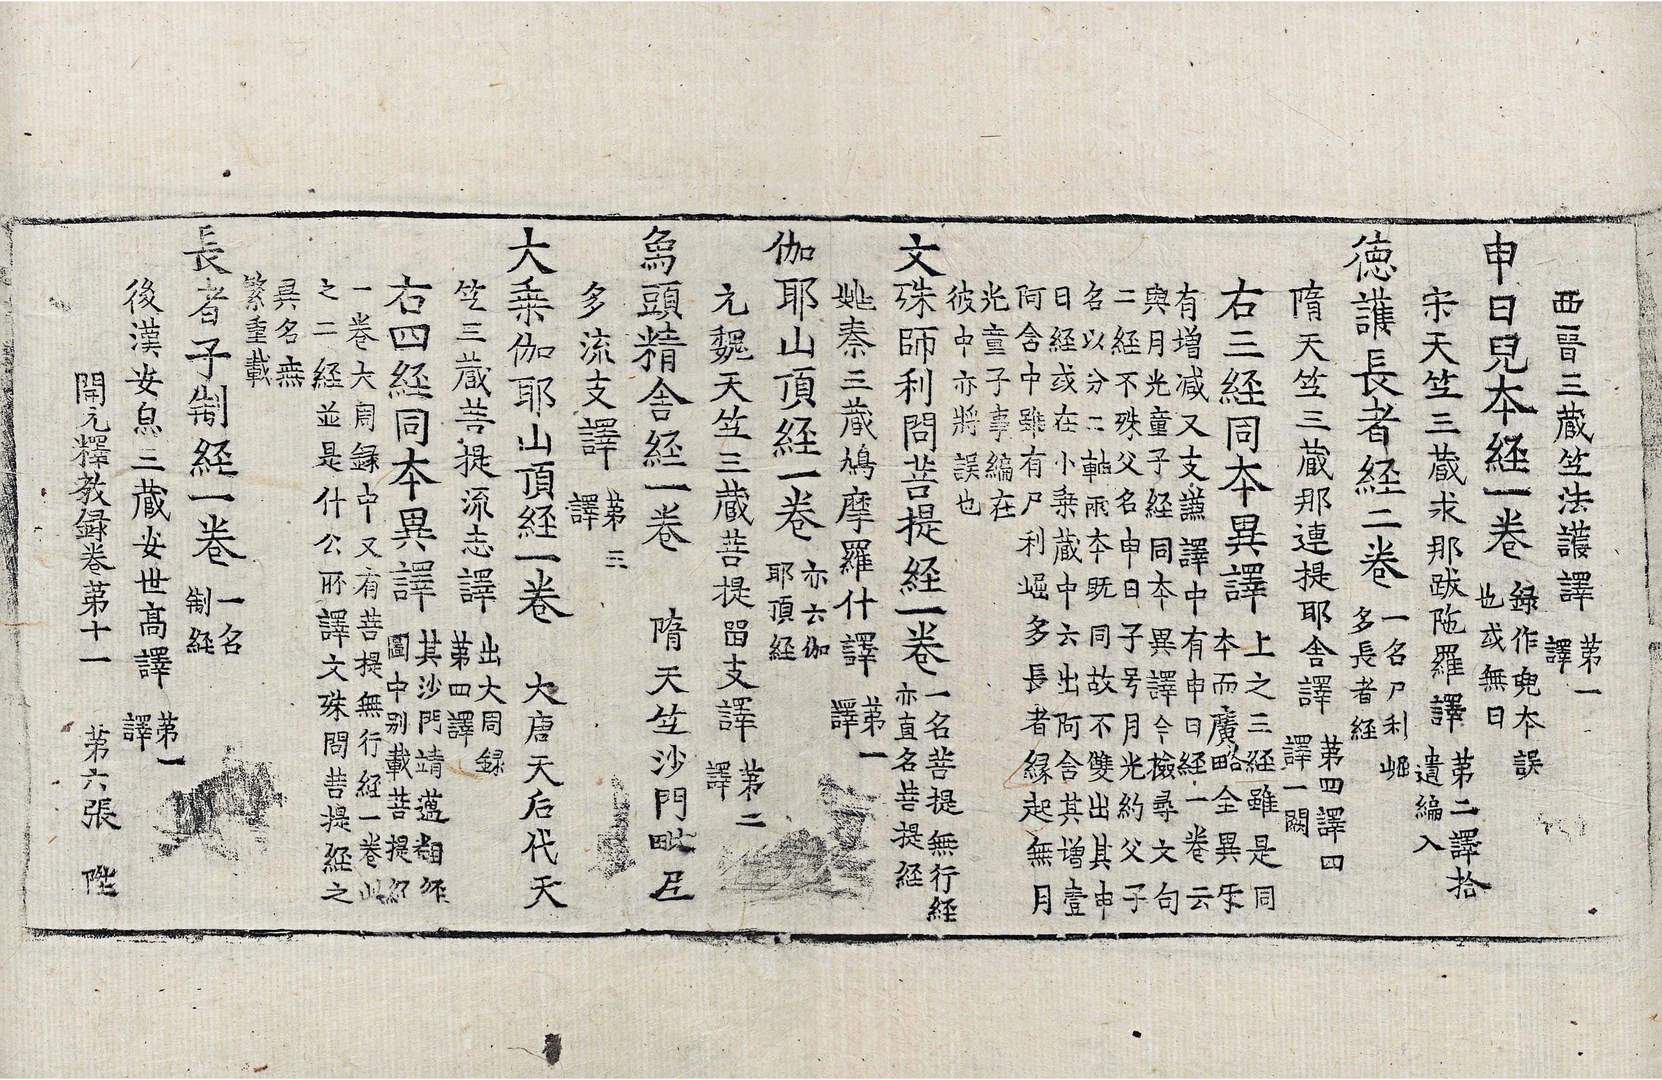 西晋三蔵竺法護譯 第一譯
申日兒本經一卷 録作兜本誤也或無日
宋天竺三蔵求那跋陁羅譯 第二譯拾遺編入
徳護長者經二卷 一名尸利崛多長者經
隋天竺三蔵那連提耶舎譯 第四譯四譯一闕
右三經同本異譯 上之三經雖是同本而廣略全異不
有增减又支謙譯中有申日經一卷云
與月光童子經同本異譯今檢尋文句
二經不殊父名申日子号月光約父子
名以分二軸兩本既同故不雙出其申
日經或在小乗蔵中六出阿含其增壹
阿含中雖有尸利崛多長者縁起無月
光童子事編在
彼中亦將誤也
文殊師利問菩提經一卷 一名菩提無行經亦直名菩提經
姚秦三蔵鳩摩羅什譯 第一譯
伽耶山頂經一卷 亦云伽耶頂經
元魏天竺三蔵菩提畱支譯 第二譯
象頭精舎經一卷 隋天竺沙門毗尼
多流支譯 第三譯
大乗伽耶山頂經一卷 大唐天后代天
竺三蔵菩提流志譯 出大周録第四譯
右四經同本異譯 其沙門靖邁翻經圖中别載菩提經
一卷大周録中又有菩提無行經一卷此
之二經並是什公所譯文殊問菩提經之
異名無
繁重載
長者子制經一卷 一名制經
後漢安息三蔵安世高譯 第一譯
開元釋教録卷第十一 第六張 陛